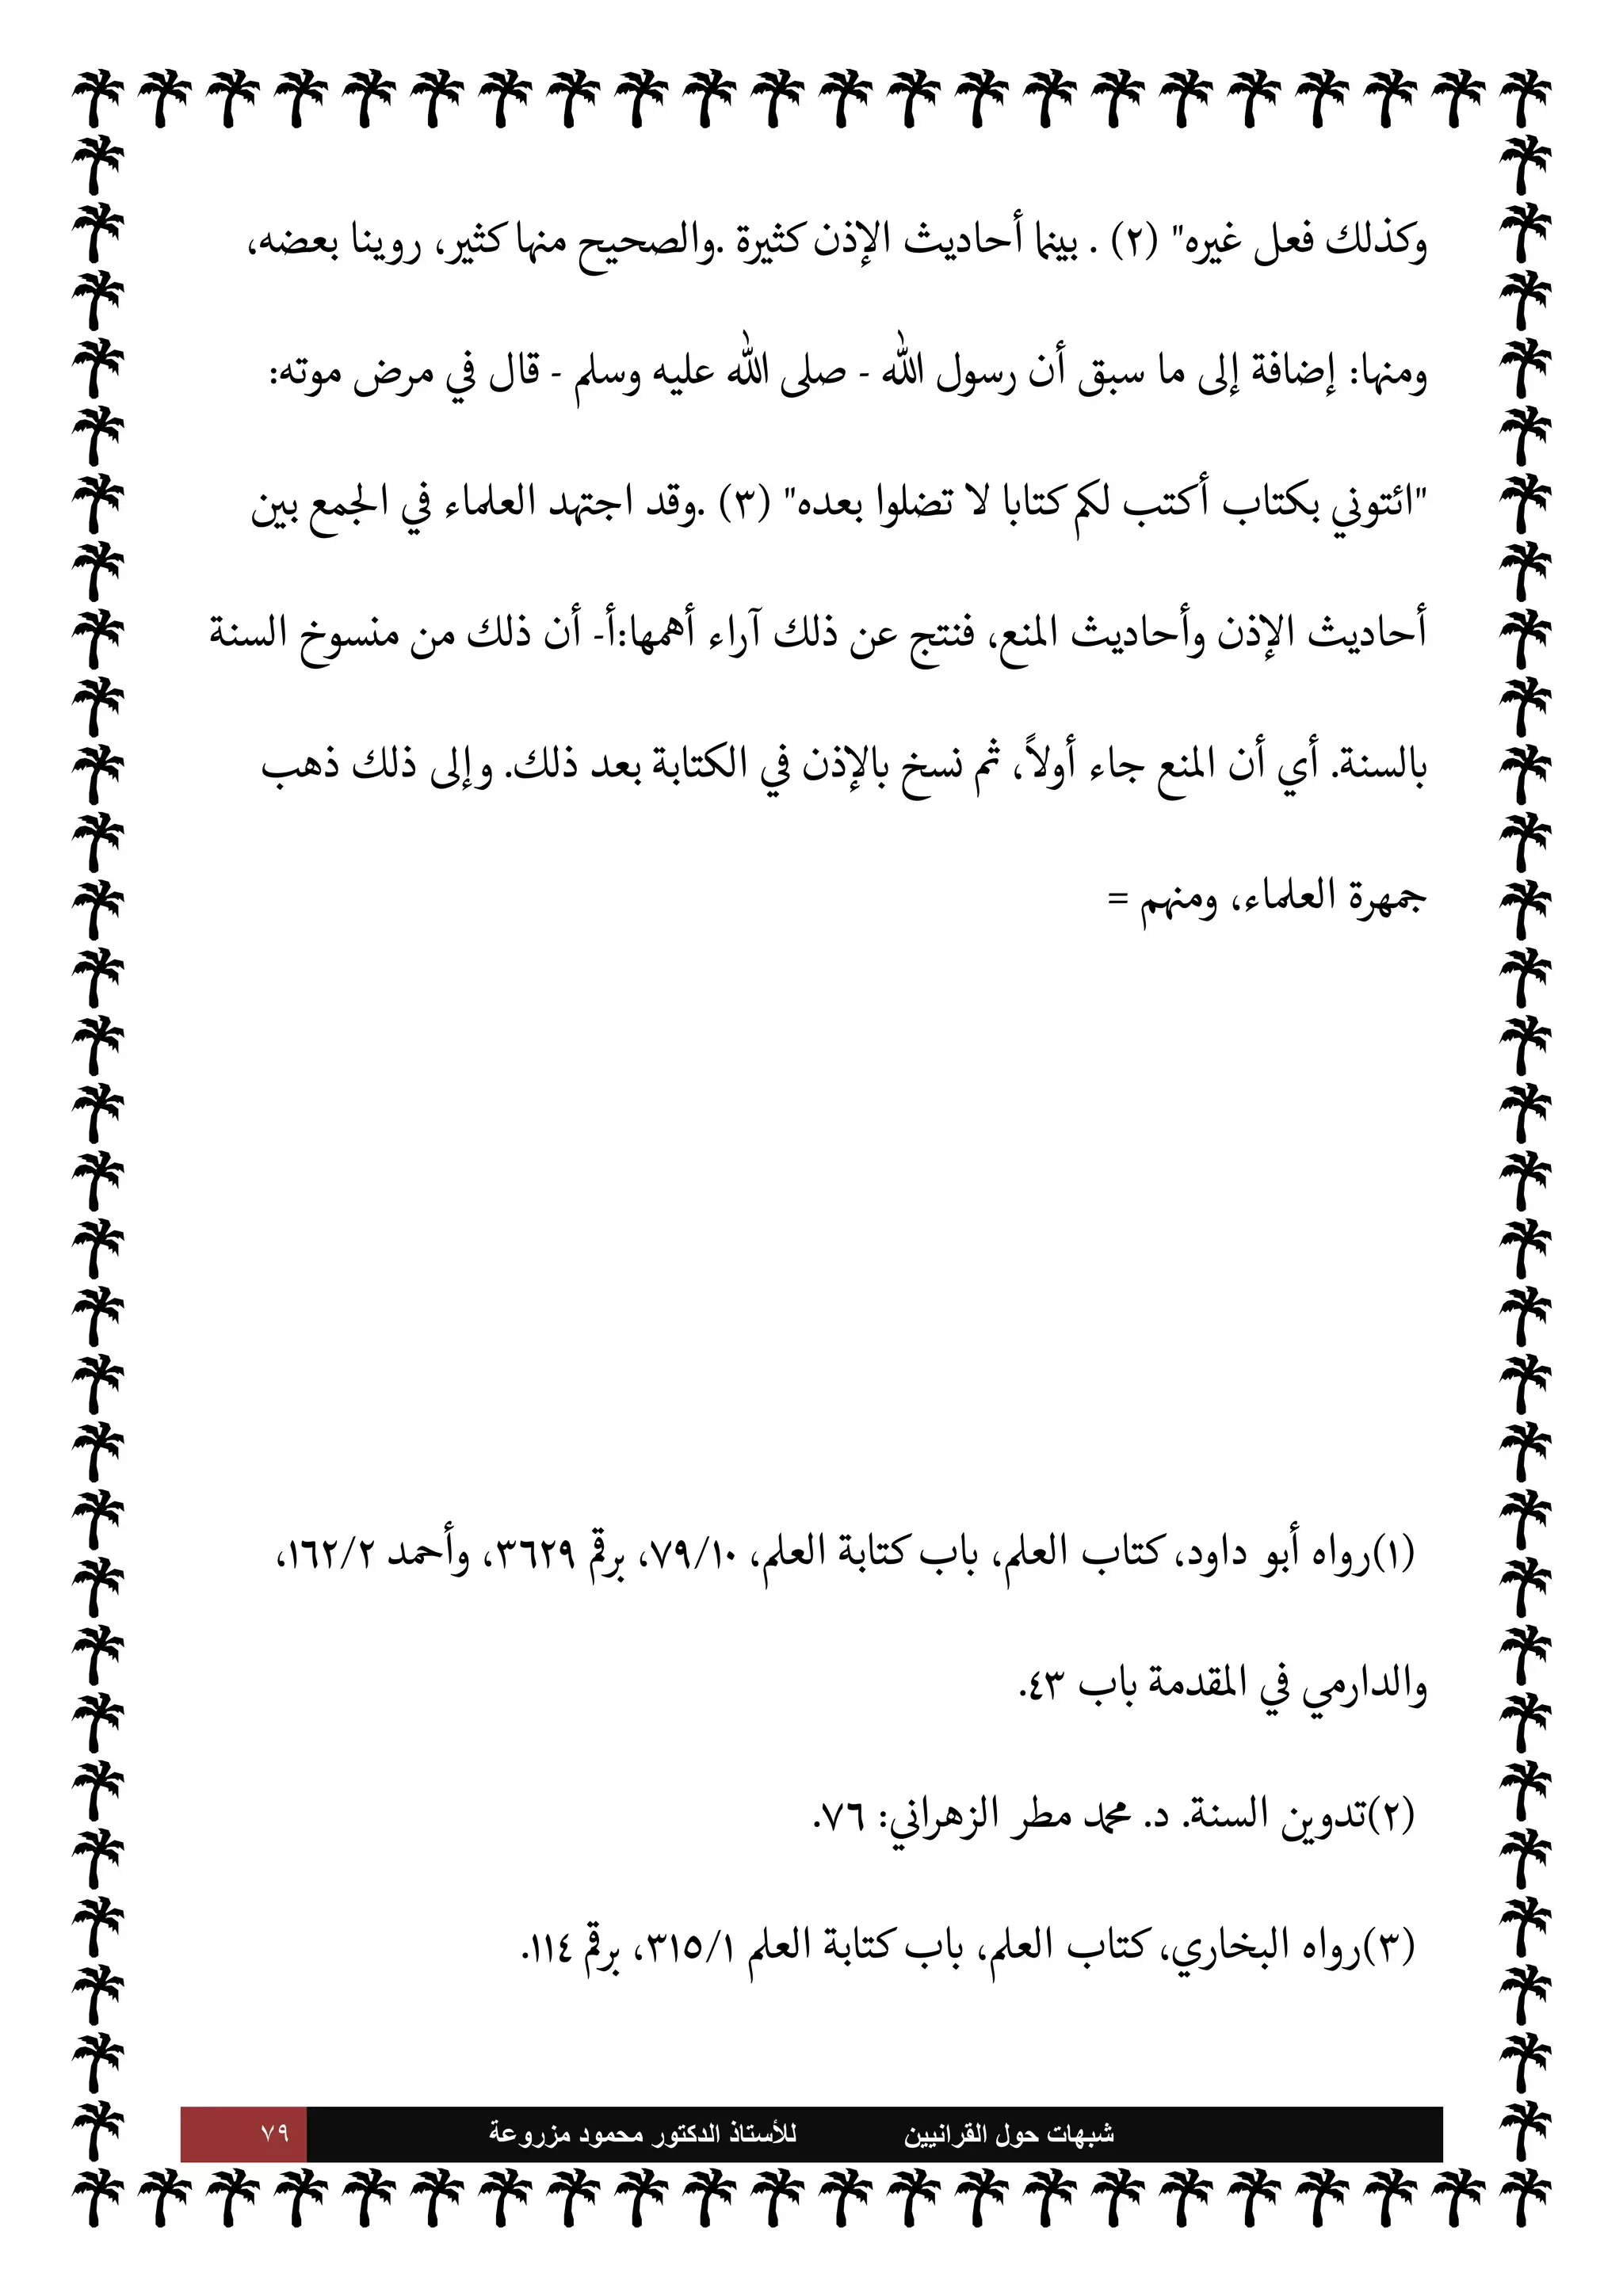 وكذلك فعل غيره" (٢) . بينما أحاديث الإذن كثيرة .والصحيح منها كثير، روينا بعضه،
ومنها: إضافة إلى ما سبق أن رسول الله - صلى الله عليه وسلم - قال في مرض موته:
"ائتوني بكتاب أكتب لكم كتابا لا تضلوا بعده" (٣) .وقد اجتهد العلماء في الجمع بين
أحاديث الإذن وأحاديث المنع، فنتج عن ذلك آراء أهمها:أ- أن ذلك من منسوخ السنة
بالسنة. أي أن المنع جاء أولاً، ثم نسخ بالإذن في الكتابة بعد ذلك. وإلى ذلك ذهب
جمهرة العلماء، ومنهم =
(١)رواه أبو داود، كتاب العلم، باب كتابة العلم، ٧٩/١٠، برقم ٣٦٢٩، وأحمد ١٦٢/٢،
والدارمي في المقدمة باب ٤٣.
(٢)تدوين السنة. د. محمد مطر الزهراني: ٧٦.
(٣)رواه البخاري، كتاب العلم، باب كتابة العلم ٣١٥/١، برقم ١١٤.
شبهات حول القرانيين للأستاذ الدكتور محمود مزروعة ٧٩